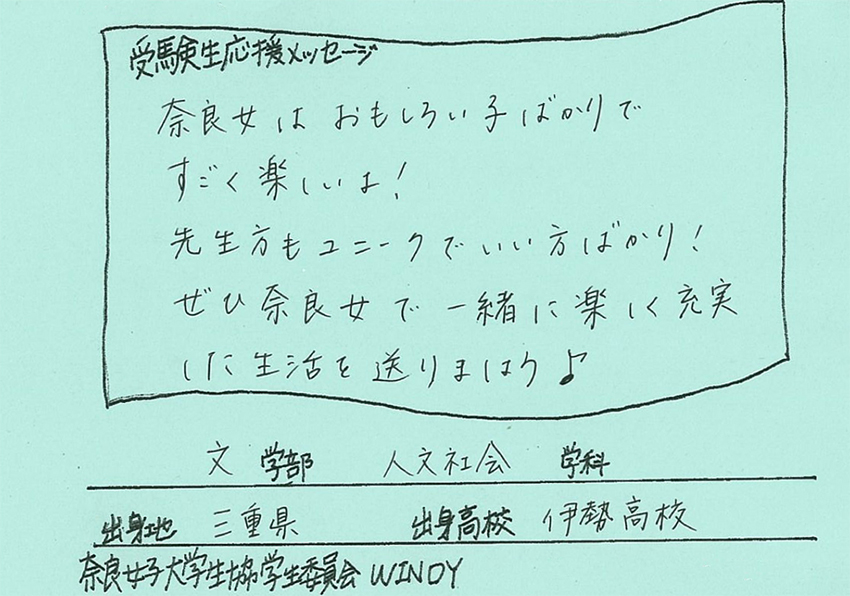 受験生応援メッセージ
奈良女は おもしろい子ばかりで
すごく楽しいよ!
先生方もユニークでいい方ばかり!
ぜひ奈良女で一緒に楽しく充実
した生活を送りましょう♪
文 学部 人文社会 学科
出身地 三重県 出身高校 伊勢高校
奈良女子大学生協学生委員会 WINDY